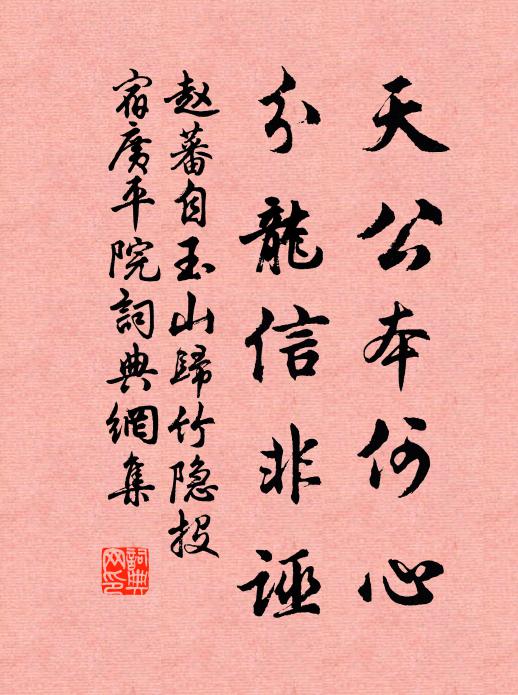 天公本何心
分龍信非誣
赵蕃自玉山歸竹隐投
宿廣平院詞典網集
詞典网印